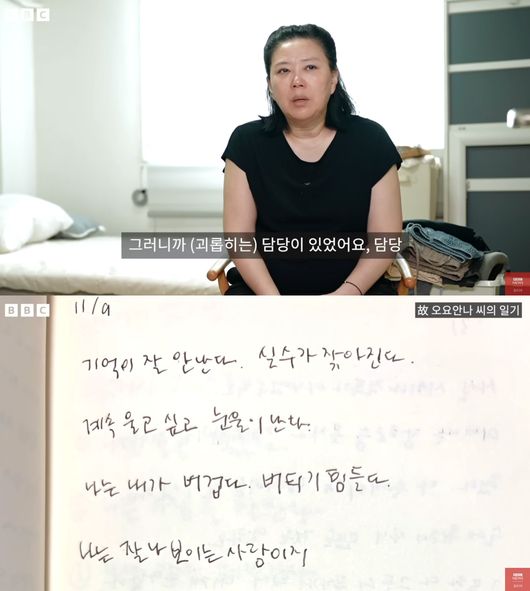 BBC
그러니까 (괴롭히는) 담당이 있었어요, 담당
BBC
NEWS
코리아
BBC
故 오요안나 씨의 일기
11/9
기억이 잘 안난다. 실수가 잦아진다.
계속 울고 싶고 눈물이 난다.
나는 내가 버겁다. 버티기 힘들다.
나는 잘나 보이는 사람이지
BBC
NEWS
코리아